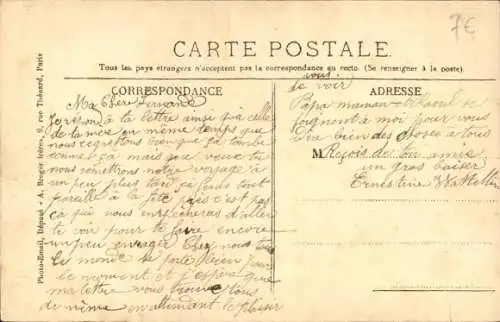 7€
CARTE POSTALE.
Tous les pays étrangers n'acceptent pas la correspondance au recto. (Se renseigner à la poste)
CORRESPONDANCE
Ma Chère Fernande
à la lettre ainsi que celle
de ta mère en même temps que
nous regrettons bien que ça tombe
comme ça mais que veux tu
nous remettrons notre voyage à
un peu plus tard ça fends tout
pareille à la fête pars c'est pas
ça qui nous empêcheras d'aller
te voir pour te faire encore
un peu enrager Chez nous tout
le monde se porte bien pour
le moment et j'espère que
ma lettre vous trouve tous
de même en attendant le plaisir
ADRESSE
vous.
de voir
Papa maman Raoul se
joignent à moi pour vous
dire bien des choses à tous
M Reçois de ton amie
un gros baiser
Ernestine
Photo-Email, Déposé - A. Breger frères, 9, rue Thénard, Paris